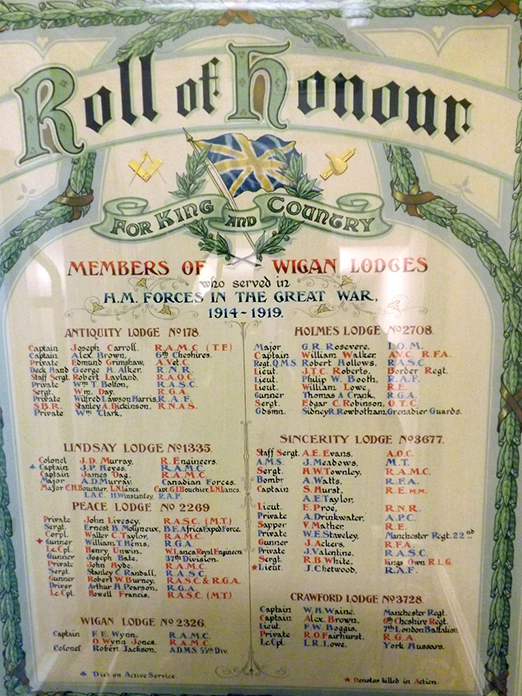 Roll of Honour
FOR KING AND COUNTRY
MEMBERS OF WIGAN LODGES
who served in
H.M. FORCES IN THE GREAT WAR,
1914-1919.
ANTIQUITY LODGE No 178.
Captain Joseph Carroll. R.A.M.C. (T.F)
Captain Alex Brown, 6th Cheshires.
Private Edmund Grimshaw, A.Vet.C.
Deck Hand George H. Alker, R.N.R.
Staff Sergt Robert Layland, R.A.O.C.
Private Wm T. Bolton, R.A.S.C.
Sergt. Wm. Day, R.G.A.
Private Wilfred Lawson Harris, R.A.F.
S.B.R. Stanley A. Dickinson, R.N.A.S.
Private Wm Clark,
LINDSAY LODGE No 1335.
Colonel J.D. Murray, R. Engineers.
Captain J.P. Heyes, R.A.M.C.
Captain James Dag, R.A.M.C.
Major A.D. Murray, Canadian Forces.
Major C.H. Bouchier, L.N. Lancs. Capt G.H. Bouchier, L.N. Lancs.
L.A.C. H. Winstanley, R.A.F.
PEACE LODGE No 2269
Private John Livesey, R.A.S.C. (M.T.)
Sergt. Ernest B. Molyneux, B.E. Africa Exped. Force.
Corpl. Walter C. Taylor, R.A.M.C.
Gunner William T. Hems, R.G.A.
Lc. Cpl. Henry Unwin, W. Lancs. Royal Engineers
Gunner Joseph Bate, 31st Division.
Private John Hyde, R.A.M.C.
Sergt. Stanley C. Randall, R.A.S.C.
Gunner Robert W. Burney, R.A.S.C & R.G.A.
Driver Arthur H. Pearson, R.G.A.
Lc. Cpl. Howell Francis, R.A.S.C. (M.T.)
WIGAN LODGE No 2326.
Captain F.E. Wynn, R.A.M.C.
Captain O. Wynn Jones, R.A.M.C.
Colonel Robert Jackson, A.D.M.S. 55th Div.
Died on Active Service.
HOLMES LODGE No 2708.
Major G.R. Rosevere, I.O.M.
Captain William Walker, A.V.C. R.F.A.
Regt. Q.M.S. Robert Hollows, R.A.S.C.
Lieut. J.T.C. Roberts, Border Regt.
Lieut. Philip W. Booth, R.A.F.
Lieut. William Lowe, R.E.
Gunner Thomas A Crank, R.G.A.
Sergt. Edgar C. Robinson, O.T.C.
Gdsmn. Sidney R. Rowbotham, Grenadier Guards.
SINCERITY LODGE No 3677.
Staff Sergt. A.E. Evans, A.O.C.
A.M.S. J. Meadows, M.T.
Sergt. H.W. Townley, R.A.M.C.
Bombr A. Watts, R.F.A.
Captain S. Hurst, R.E.
A.E. Taylor,
Lieut. E. Proe, R.N.R.
Private A. Drinkwater, A.P.C.
Sapper V. Mather, R.E.
Private W.E. Staveley, Manchester Regt. 22nd
Gunner J. Ackers, R.F.A.
Private J. Valentine, R.A.S.C.
Sergt. R.B. White, Kings Own R.L.
Lieut. J. Chetwood, R.A.F.
CRAWFORD LODGE No 3728
Captain W.H. Waine, Manchester Regt.
Captain Alex. Brown, 6th Cheshire Regt.
Lieut. F.W. Boggis, 7th London Battalion
Private R.O. Fairhurst, R.G.A.
Lc. Cpl. I.R. Lowe, York Hussars.
Denotes killed in Action.